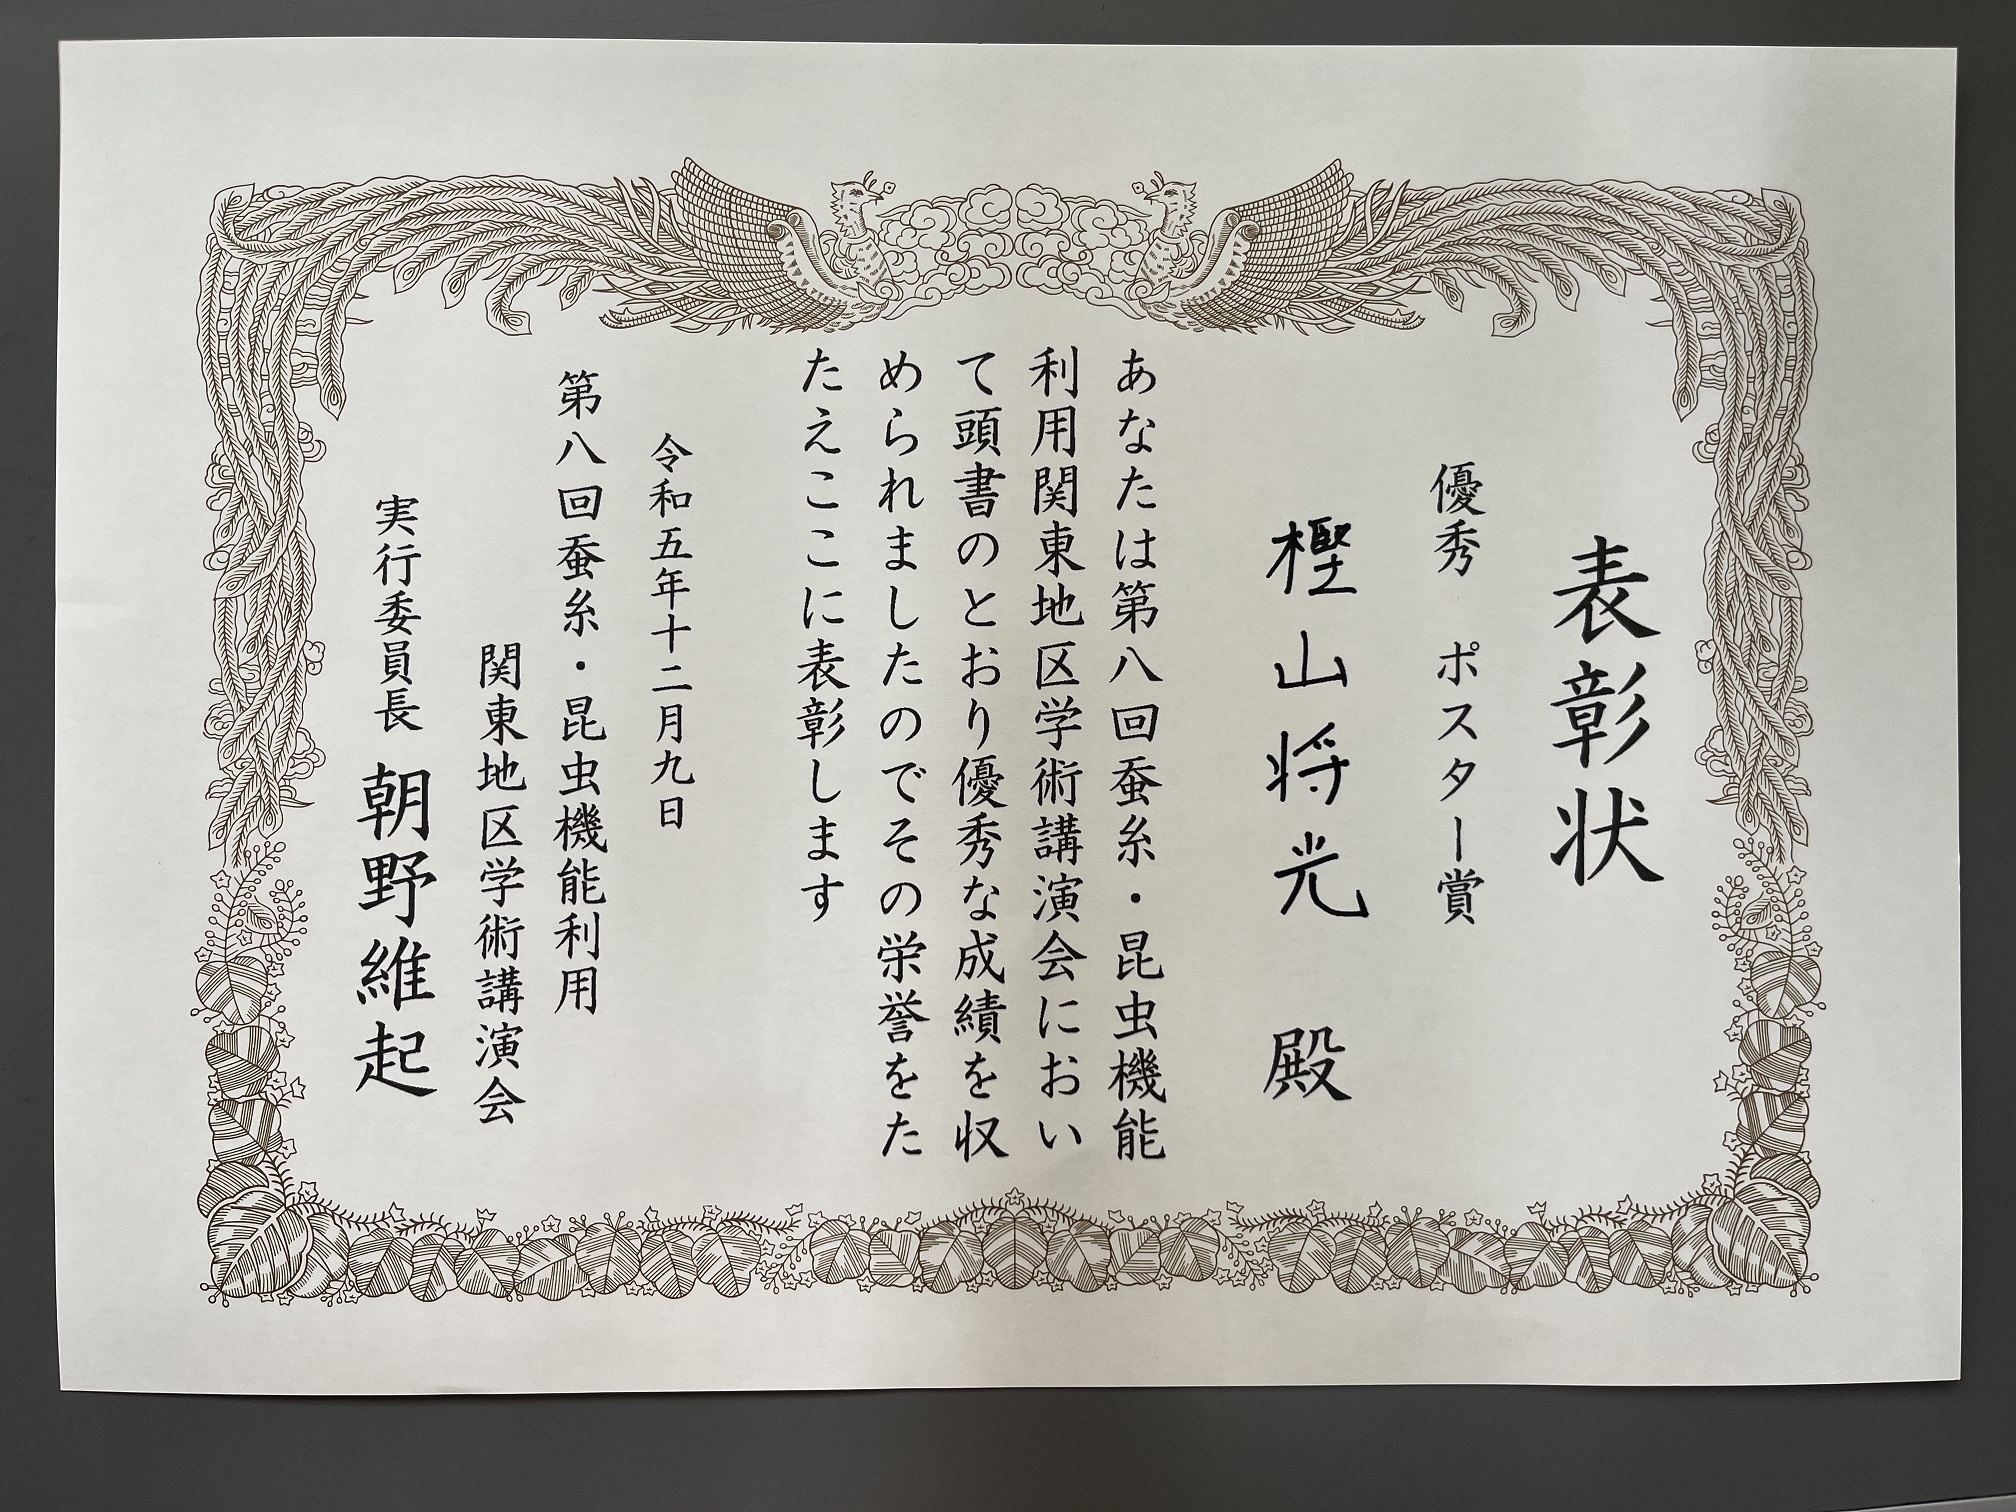 表彰状
優秀 ポスター賞
樫山将光 殿
あなたは第八回蚕糸・昆虫機能
利用関東地区学術講演会におい
て頭書のとおり優秀な成績を収
められましたのでその栄誉をた
たえここに表彰します
令和五年十二月九日
第八回蚕糸・昆虫機能利用
関東地区学術講演会
実行委員長 朝野維起